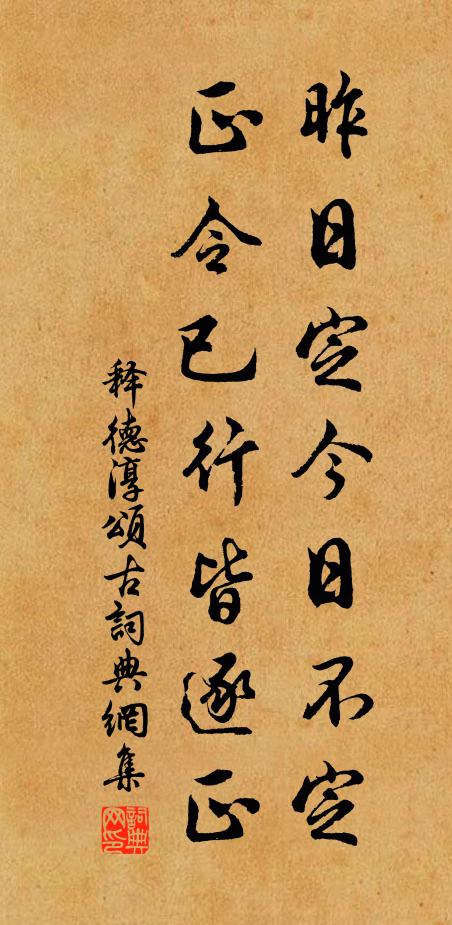 昨日定今日不定
正令已行皆逐正
释德淳頌古詞典網集
詞典网印